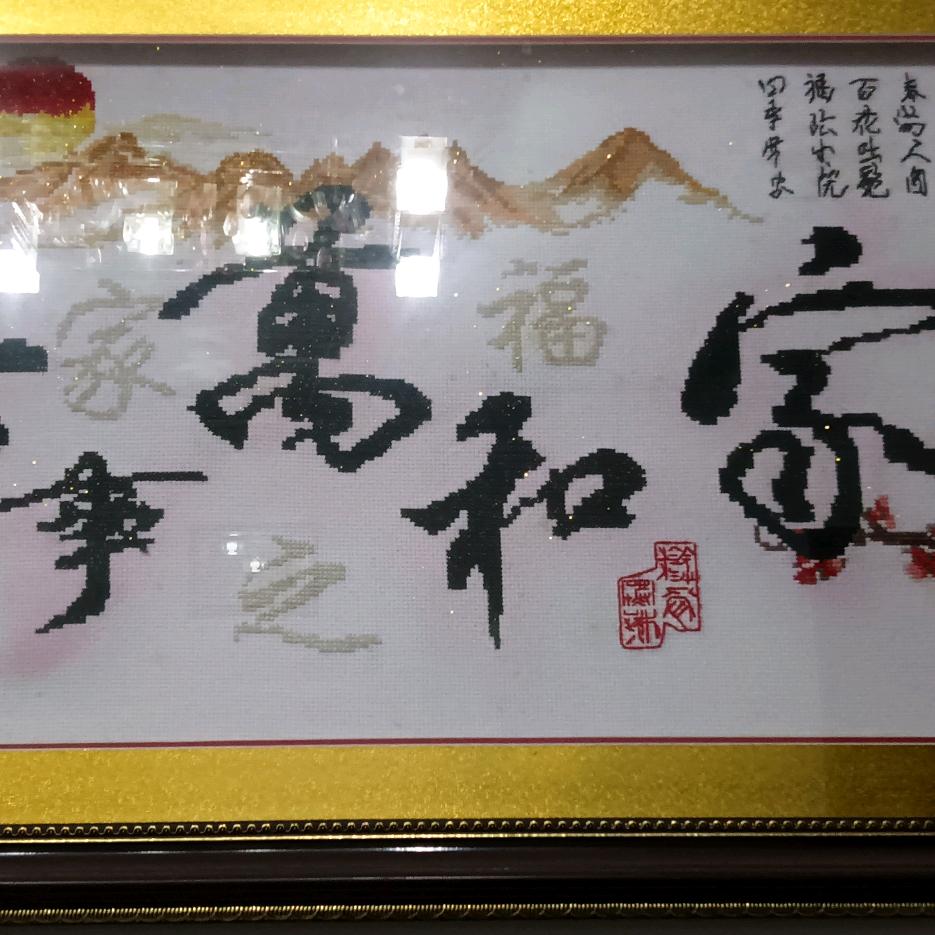 春满人间
百花吐艳
福临小院
四季常安
家
和
萬
事
福
之
家